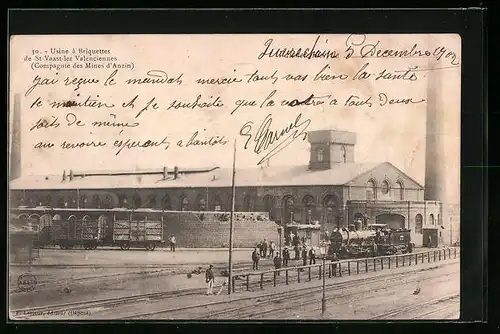 30. - Usine à Briquettes
de St Vaast-lez Valenciennes
(Compagnie des Mines d'Anzin)
5 Décembre 1902
J'ai reçue le mandat merci tout vas bien la santé
se maintien et je souhaite que la votre a tout deux
soit de même
au revoir esperant a bientot
E. Garnel